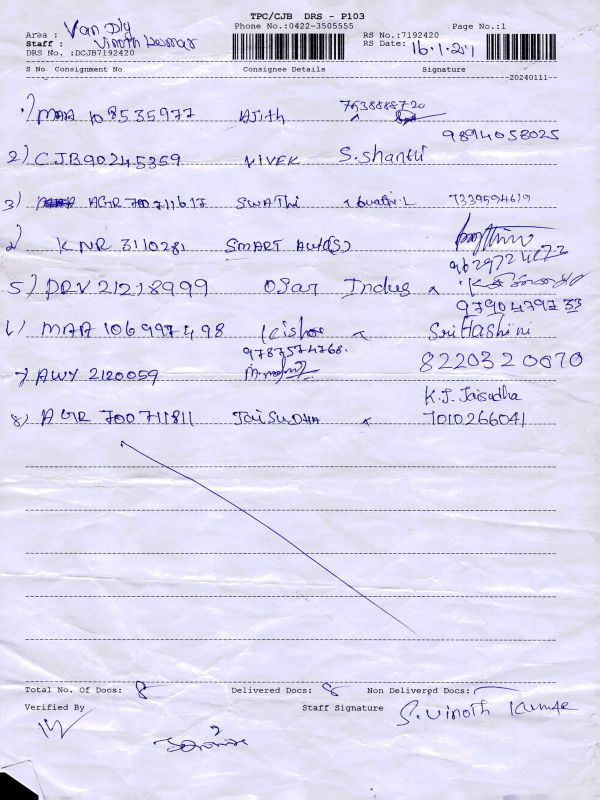 TPC/CJB DRS - P103
Phone No.:0422-3505555 Page No.:1
Area : Van Dly
Staff : Vinoth Kumar
DRS No. :DCJB7192420
RS No.:7192420
RS Date: 16.1.24
S No Consignment No Consignee Details Signature
20240111
1) MAA 108535977 Ajith 7638888720
9894058025
2) CJB90245369 VIVEK S.Shanthi
3) AGR 700711617 SWATHI Swathi.L
4) KNR 3110281 SMART AUTO(S)
9629724073
5) PRV 21218999 Osar Indus
9790479733
6) MAA 106997498 Kishor SriHashini
9787574768.
8220320070
7) AWY 2120059
K.J. Jaisudha
8) AGR 700711811 JAISUDHA x 7010266041
Total No. Of Docs: 8 Delivered Docs: 8 Non Delivered Docs:
Verified By Staff Signature S. Vinoth Kumar